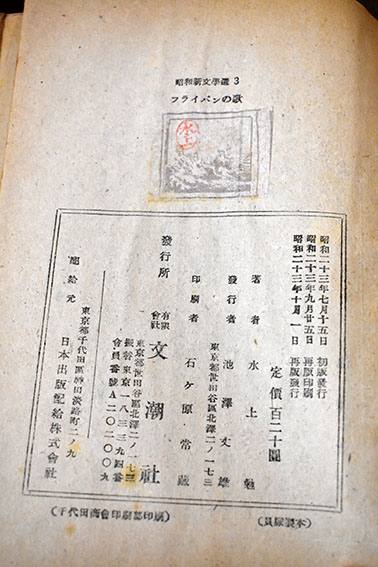 昭和新文學選 3
フライパンの歌
水上
昭和二十三年七月十五日 初版發行
昭和二十三年九月廿五日 再版印刷
昭和二十三年十月一日 再版發行
定價百二十圓
著者 水上勉
發行者 池澤丈雄
東京都世田谷區北澤二ノ一七三
印刷者 石ケ原常藏
發行所 有限會社 文潮社
東京都世田谷區北澤二ノ一七三
振替東京一八三三九四番
會員番號A二〇二〇〇九
配給元
東京都千代田區神田淡路町二ノ九
日本出版配給株式會社
(千代田商會印刷部印刷)
(貝塚製本)